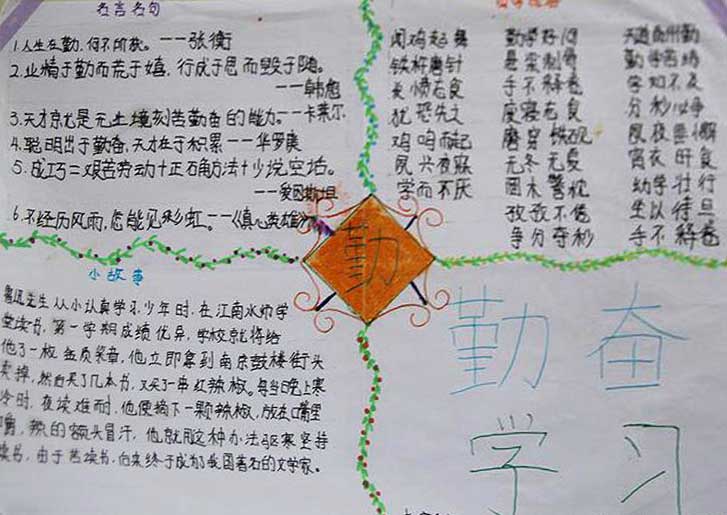 名言名句
1.人生在勤,何不所获。——张衡
2.业精于勤而荒于嬉,行成于思而毁于随。
——韩愈
3.天才就是无止境刻苦勤奋的能力。——卡莱尔
4.聪明出于勤奋,天才在于积累——华罗庚
5.成功=艰苦劳动+正确方法+少说空话。
——爱因斯坦
6.不经历风雨,怎能见彩虹。——《真心英雄》
小故事
鲁迅先生从小认真学习,少年时,在江南水师学
堂读书,第一学期成绩优异,学校就将给
他了一枚金质奖章,他立即拿到南京鼓楼街头
卖掉,然后买了几本书,又买了一串红辣椒。每当晚上寒
冷时,夜读难耐,他便摘下一颗辣椒,放在嘴里
嚼,辣的额头冒汗,他就用这种办法驱寒坚持
读书,由于苦读书,后来终于成为我国著名的文学家。
闻鸡起舞 勤学好问
铁杵磨针 悬梁刺骨 勤学苦练
发愤忘食 手不释卷 学如不及
犹恐失之 废寝忘食 分秒必争
鸡鸣而起 磨穿铁砚
夙兴夜寐 无冬无夏 宵衣旰食
学而不厌 圆木警枕 幼学壮行
孜孜不倦 坐以待旦
争分夺秒 手不释卷
勤
勤奋
学习